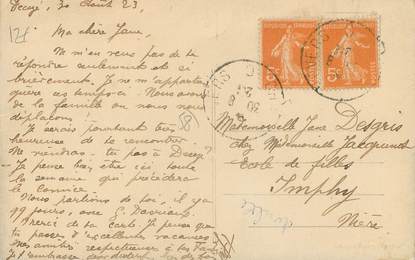 Decize, 30 Août 23,
Ma chère Jane,
Ne m'en veux pas de te
répondre seulement et si
brièvement. Je ne m'appartiens
guère ces temps-ci. Nous avons
de la famille ou nous nous
déplaçons.
Je serais pourtant très
heureuse de te rencontrer.
Ne viendras tu pas à Decize?
Je peux bien être ici toute
la semaine qui précédera
le Comice.
Nous partions de foi, il y a
jours, avec G.
Merci de ta carte. Je pense que
tu passes d'excellentes vacances
Mes amitiés respectueuses à tes
Je t'embrasse
Mademoiselle Jane Desgris
chez Mademoiselle Jacquinet
Ecole de filles
Imphy
Nièvre